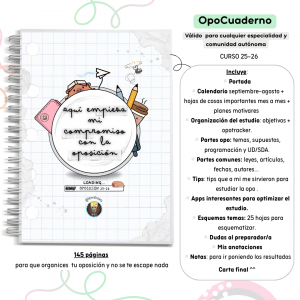 OpoCuaderno
Válido para cualquier especialidad y
comunidad autónoma
CURSO 25-26
Incluye:
Portada
Calendario septiembre-agosto +
hojas de cosas importantes mes a mes +
planes motivares
Organización del estudio: objetivos +
opotracker.
Partes opo: temas, supuestos,
programación y UD/SDA.
Partes comunes: leyes, artículos,
fechas, autores...
Tips: tips que a mi me sirvieron para
estudiar la opo .
Apps interesantes para optimizar el
estudio.
Esquemas temas: 25 hojas para
esquematizar.
Dudas al preparador/a
Mis anotaciones
Notas: para ir poniendo los resultados
Carta final ^^
aquí empieza
mi
compromiso
con la
oposición
LOADING...
OPOSICIÓN 25-26
145 páginas
para que organices tu oposición y no se te escape nada